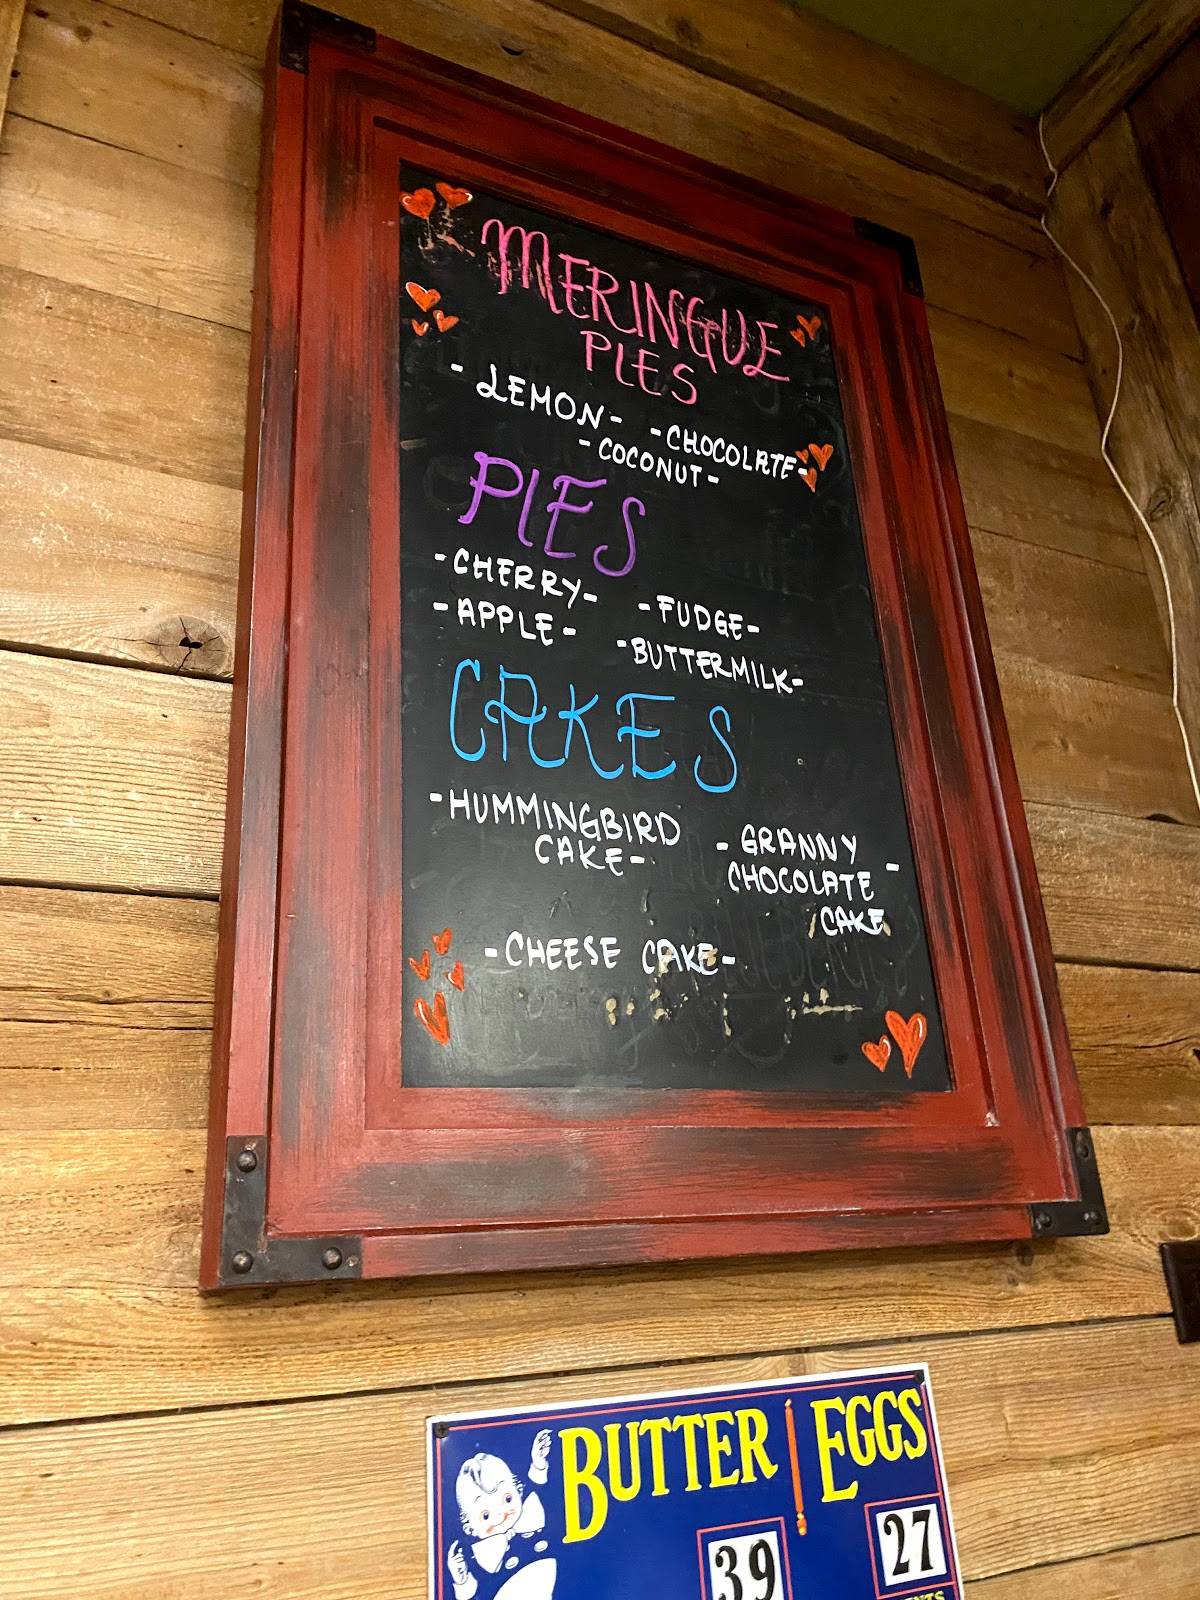 MERINGUE
PIES
- LEMON - - CHOCOLATE -
- COCONUT -
PIES
- CHERRY - - FUDGE -
- APPLE - - BUTTERMILK -
CAKES
- HUMMINGBIRD
CAKE -
- GRANNY
CHOCOLATE -
CAKE
- CHEESE CAKE -
BUTTER EGGS
39 27